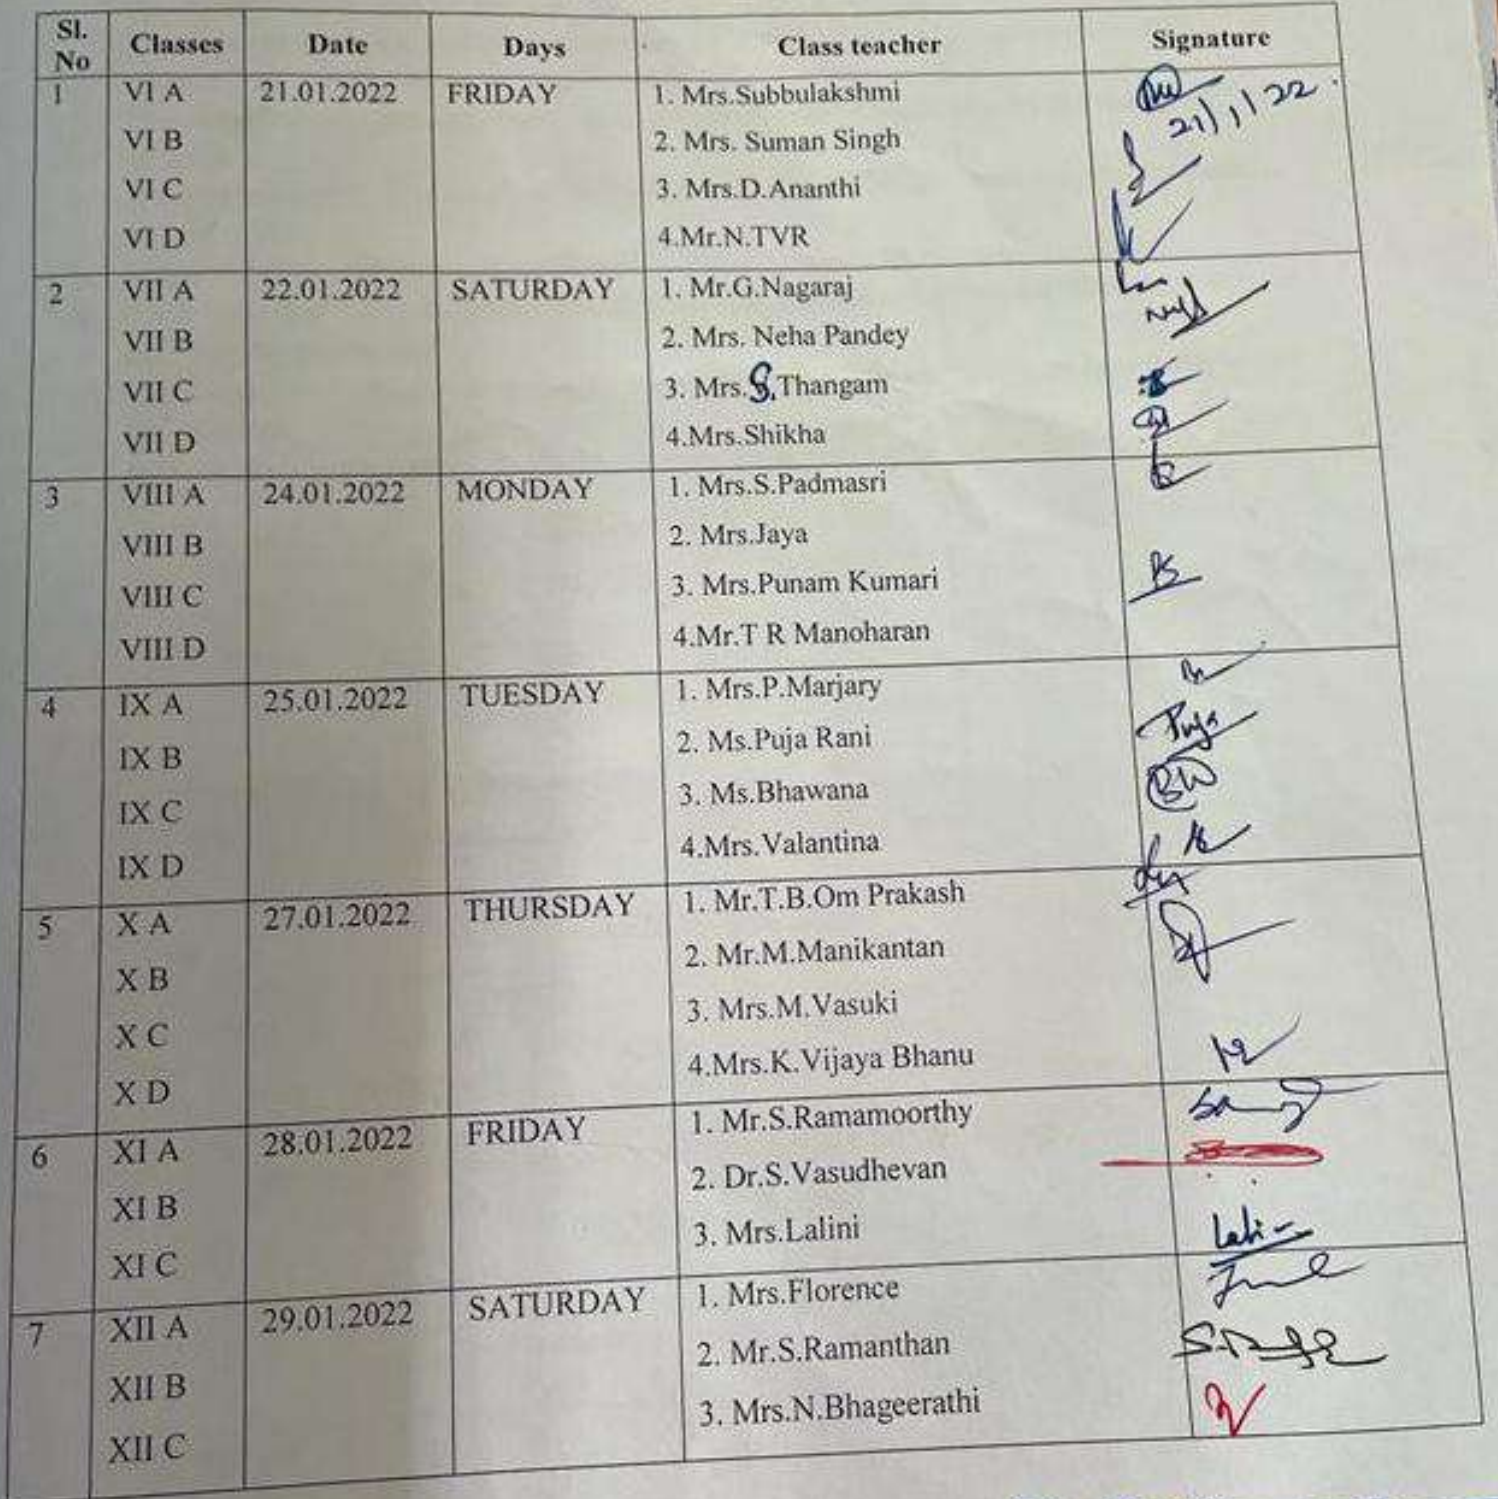 Sl. No Classes Date Days Class teacher Signature
1 VI A 21.01.2022 FRIDAY 1. Mrs.Subbulakshmi
21/1/22
VI B 2. Mrs. Suman Singh
VI C 3. Mrs.D.Ananthi
VI D 4.Mr.N.TVR
2 VII A 22.01.2022 SATURDAY 1. Mr.G.Nagaraj
VII B 2. Mrs. Neha Pandey
VII C 3. Mrs.S.Thangam
VII D 4.Mrs.Shikha
3 VIII A 24.01.2022 MONDAY 1. Mrs.S.Padmasri
VIII B 2. Mrs.Jaya
VIII C 3. Mrs.Punam Kumari
VIII D 4.Mr.T R Manoharan
4 IX A 25.01.2022 TUESDAY 1. Mrs.P.Marjary
IX B 2. Ms.Puja Rani Puja
IX C 3. Ms.Bhawana
IX D 4.Mrs.Valantina
5 X A 27.01.2022 THURSDAY 1. Mr.T.B.Om Prakash
X B 2. Mr.M.Manikantan
X C 3. Mrs.M.Vasuki
X D 4.Mrs.K.Vijaya Bhanu
6 XI A 28.01.2022 FRIDAY 1. Mr.S.Ramamoorthy
XI B 2. Dr.S.Vasudhevan
XI C 3. Mrs.Lalini
7 XII A 29.01.2022 SATURDAY 1. Mrs.Florence
XII B 2. Mr.S.Ramanthan
XII C 3. Mrs.N.Bhageerathi